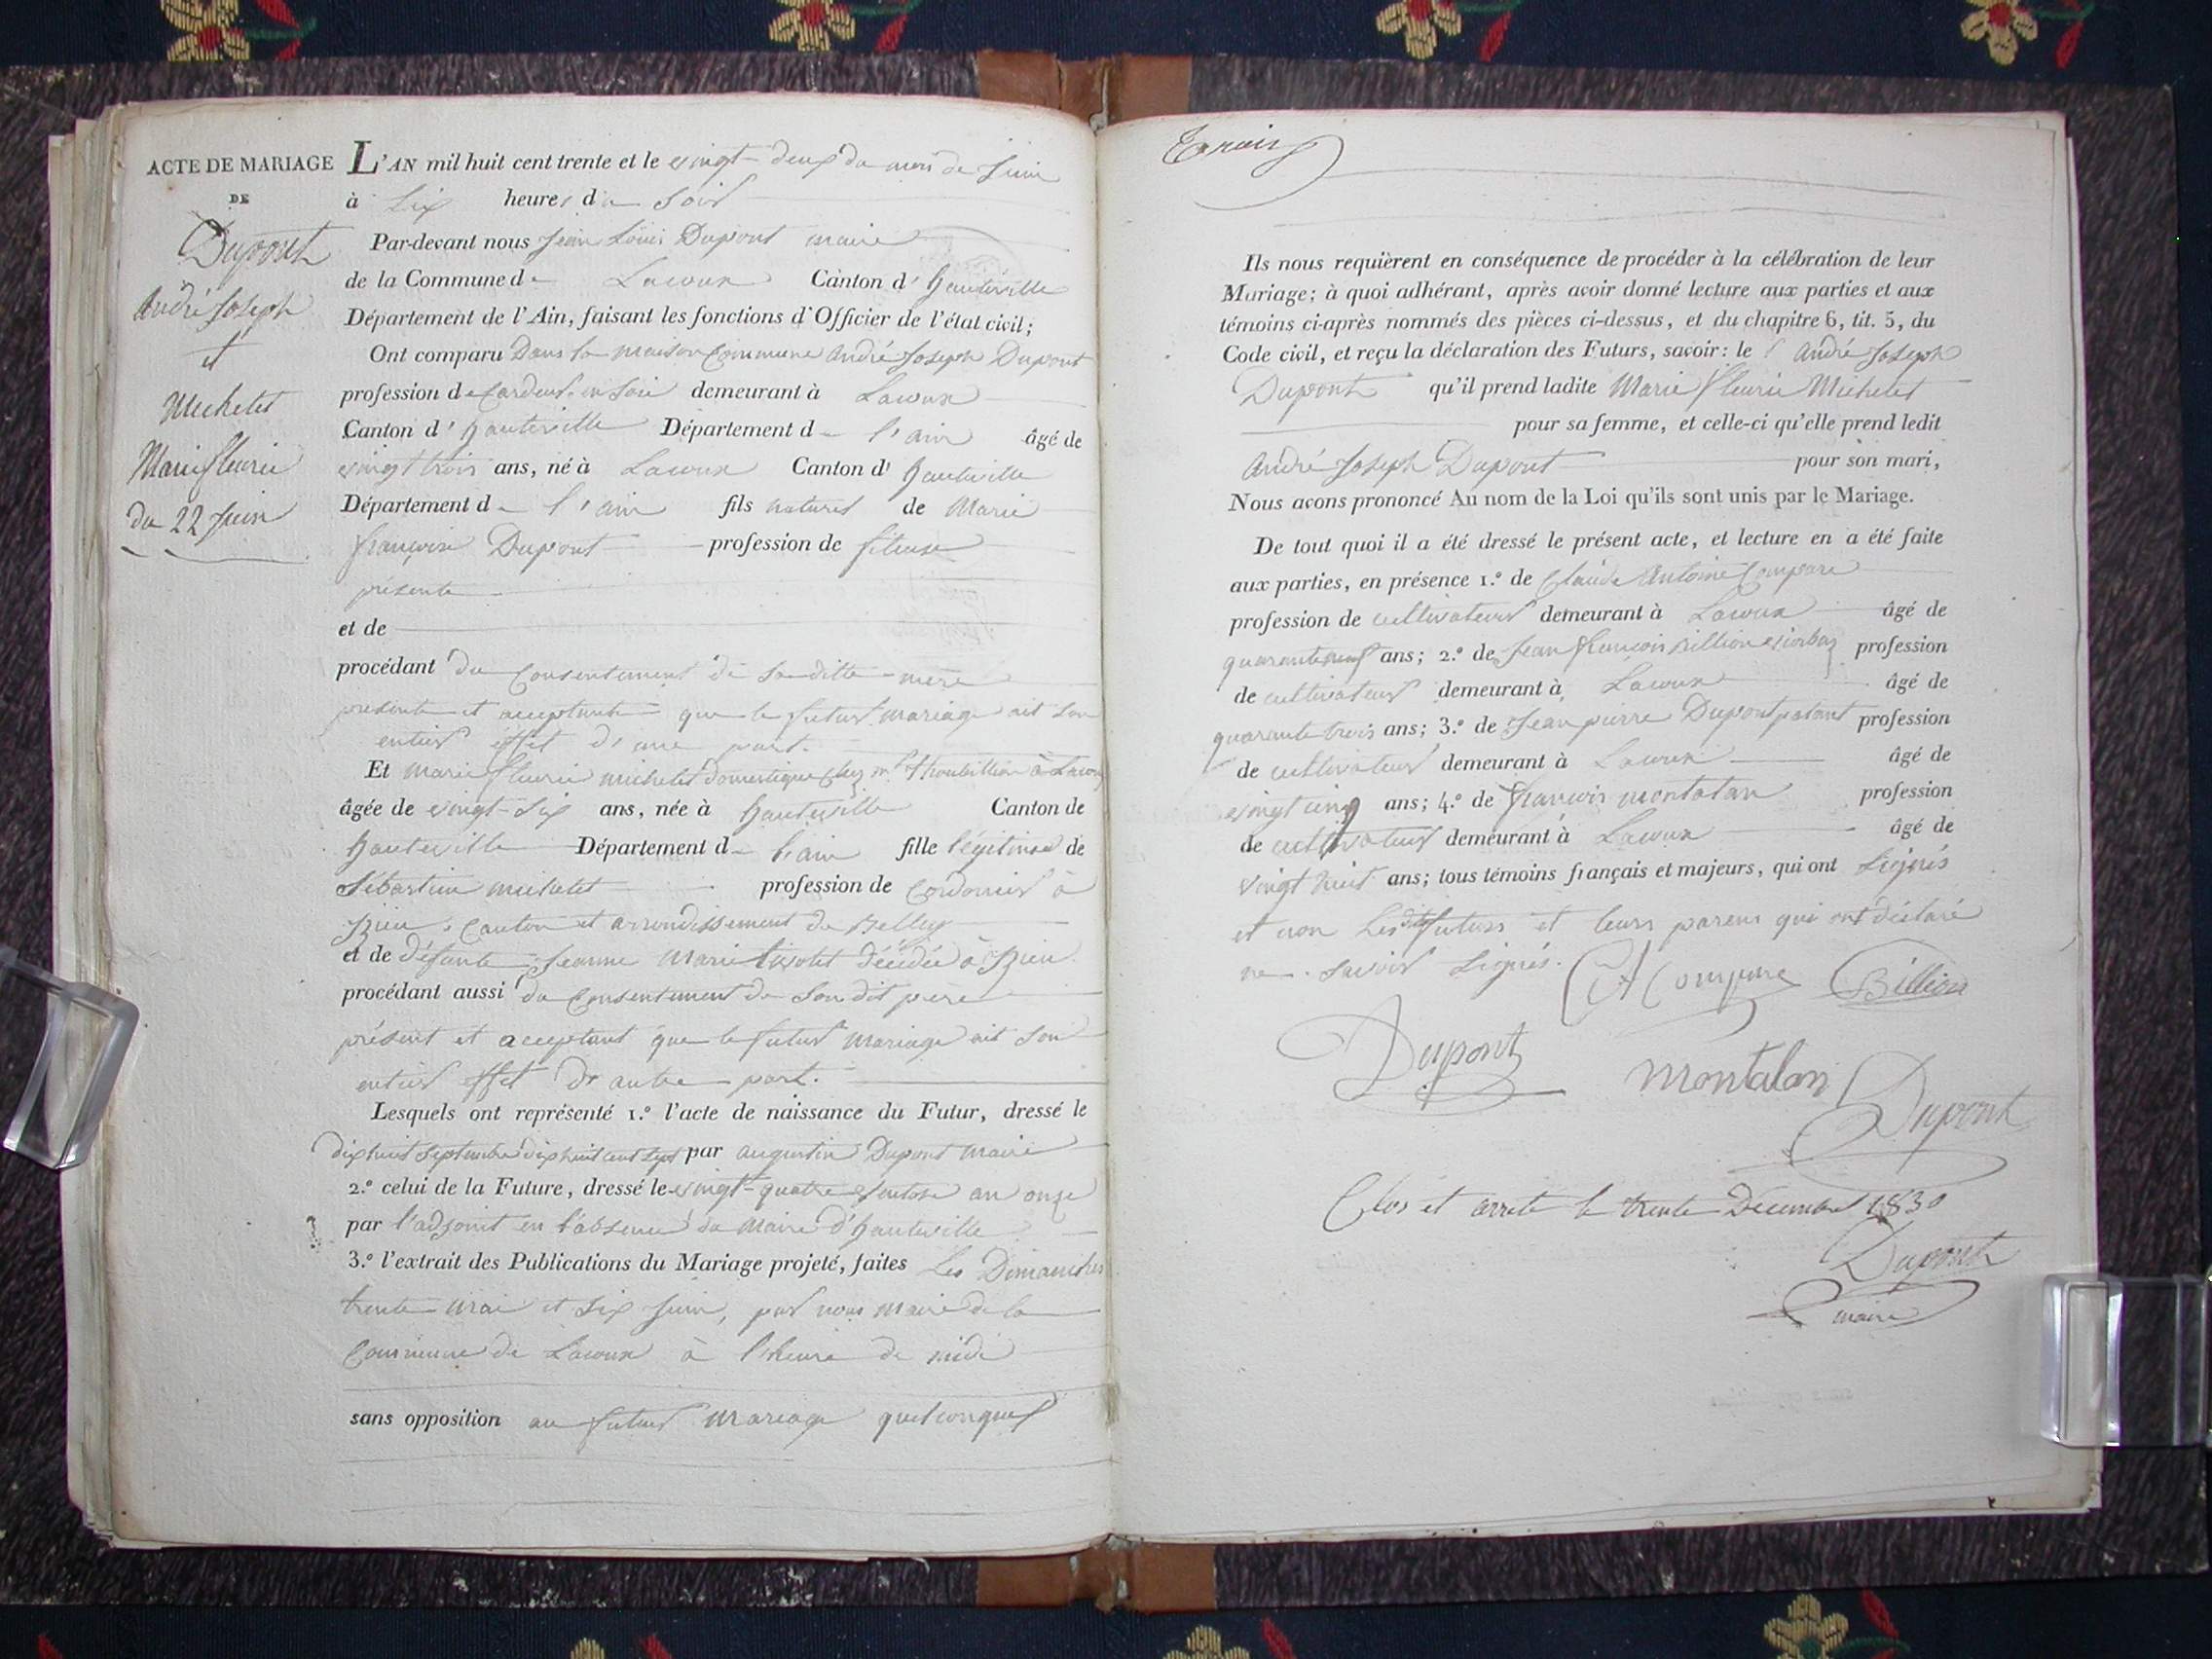 ACTE DE MARIAGE
DE
Dupont
André Joseph
et
Michelet
Marie fleurie
du 22 Juin
L'AN mil huit cent trente et le vingt-deux du mois de Juin
à Six heures du Soir
Par-devant nous Jean Louis Dupont maire
de la Commune de Lacoux Canton d'hauteville
Département de l'Ain, faisant les fonctions d'Officier de l'état civil;
Ont comparu Dans la maison Commune André Joseph Dupont
profession de Cardeur en Soie demeurant à Lacoux
Canton d'hauteville Département de l'ain âgé de
vingt trois ans, né à Lacoux Canton d'hauteville
Département de l'ain fils naturel de Marie
françoise Dupont profession de fileuse
présente
et de
procédant du Consentement de Sa ditte mère
présente et acceptante que le futur mariage ait Son
entier effet d'une part.
Et marie fleurie michelet domestique Chez mr à Lacoux
âgée de vingt-six ans, née à hauteville Canton de
hauteville Département de l'ain fille légitime de
Sébastien michelet profession de Cordonnier à
Izieu, Canton et arrondissement de Belley
et de défunte Jeanne Marie décédée à Izieu
procédant aussi du Consentement de Son dit père
présent et acceptant que le futur mariage ait Son
entier effet d'autre part.
Lesquels ont représenté 1.º l'acte de naissance du Futur, dressé le
dix huit Septembre dix huit cent Sept par augustin Dupont maire
2.º celui de la Future, dressé le vingt-quatre ventose an onze
par l'adjoint en l'absence du maire d'hauteville
3.º l'extrait des Publications du Mariage projeté, faites Les Dimanches
trente mai et Six Juin, par nous maire de la
Commune de Lacoux à l'heure de midi
sans opposition au futur mariage quelconques
trois
Ils nous requièrent en conséquence de procéder à la célébration de leur
Mariage; à quoi adhérant, après avoir donné lecture aux parties et aux
témoins ci-après nommés des pièces ci-dessus, et du chapitre 6, tit. 5, du
Code civil, et reçu la déclaration des Futurs, savoir: le André Joseph
Dupont qu'il prend ladite Marie fleurie Michelet
pour sa femme, et celle-ci qu'elle prend ledit
André Joseph Dupont pour son mari,
Nous avons prononcé Au nom de la Loi qu'ils sont unis par le Mariage.
De tout quoi il a été dressé le présent acte, et lecture en a été faite
aux parties, en présence 1.º de Claude Antoine Compare
profession de cultivateur demeurant à Lacoux âgé de
quarante neuf ans; 2.º de Jean françois Billion profession
de cultivateur demeurant à Lacoux âgé de
quarante trois ans; 3.º de Jean pierre Dupont patant profession
de cultivateur demeurant à Lacoux âgé de
vingt cinq ans; 4.º de françois montalan profession
de cultivateur demeurant à Lacoux âgé de
vingt huit ans; tous témoins français et majeurs, qui ont Signés
et non Les dits futurs et leurs parens qui ont déclaré
ne Savoir Signés.
CA Compare Billion
Dupont montalan
Dupont
Clos et arrete le trente Decembre 1830
Dupont
maire